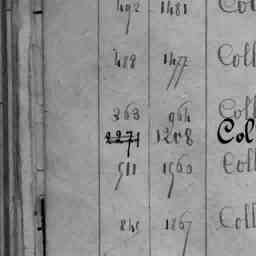 492 1481 Col
488 1477 Coll
363 964 Coll
2271 1208 Col
511 1560 Coll
845 1867 Coll